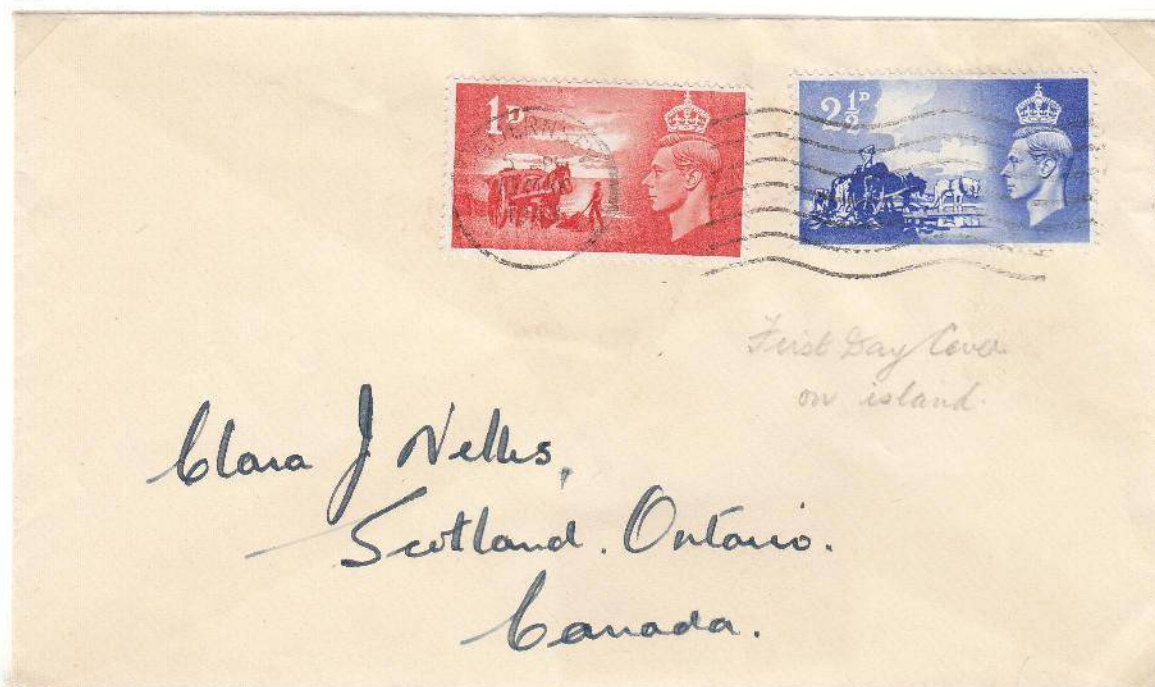 1D
2½D
First Day Cover
on island.
Clara J Nelles,
Scotland. Ontario.
Canada.